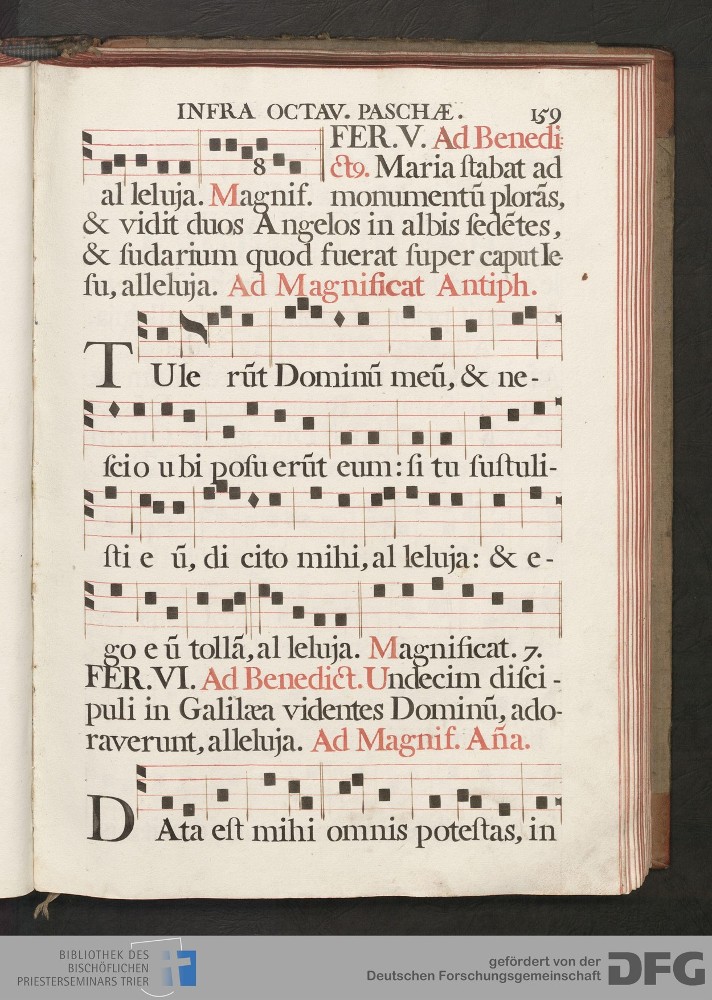 INFRA OCTAV. PASCHÆ. 159
FER. V. Ad Benedi-
ct9. Maria ſtabat ad
8
al leluja. Magnif. monumentū plorãs,
& vidit duos Angelos in albis ſedẽtes,
& ſudarium quod fuerat ſuper caput Ie-
ſu, alleluja. Ad Magnificat Antiph.
TUle rũt Dominũ meũ, & ne-
ſcio ubi poſu erũt eum: ſi tu ſuſtuli-
ſti e ũ, di cito mihi, al leluja: & e-
go e ũ tollã, al leluja. Magnificat. 7.
FER. VI. Ad Benedict. Undecim diſci-
puli in Galilæa videntes Dominũ, ado-
raverunt, alleluja. Ad Magnif. Aña.
DAta eſt mihi omnis poteſtas, in
BIBLIOTHEK DES
BISCHÖFLICHEN
PRIESTERSEMINARS TRIER
gefördert von der
Deutschen Forschungsgemeinschaft
DFG